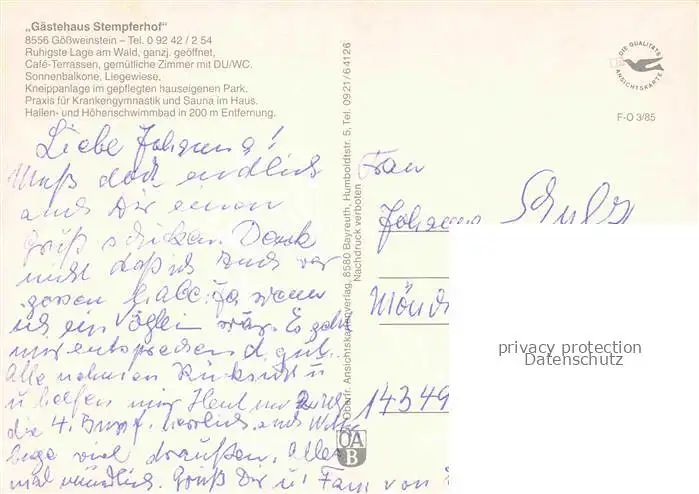 „Gästehaus Stempferhof"
8556 Gößweinstein – Tel. 0 92 42 / 2 54
Ruhigste Lage am Wald, ganzj. geöffnet,
Café-Terrassen, gemütliche Zimmer mit DU/WC.
Sonnenbalkone, Liegewiese,
Kneippanlage im gepflegten hauseigenen Park.
Praxis für Krankengymnastik und Sauna im Haus.
Hallen- und Höhenschwimmbad in 200 m Entfernung.
Liebe Johanna!
Muß doch endlich
auch Dir einen
Gruß schicken. Denk
nicht daß ich Euch ver
gessen habe. Ja wenn
ich ein Vöglein wär. Es geht
mir entsprechend gut.
Alle nehmen Rücksicht u
u helfen mir. Heut
die 4. herrlich
viel draußen. Alles
mal mündlich. Gruß Dir u. Fam von
Oberfr. Ansichtskartenverlag, 8580 Bayreuth, Humboldtstr. 5, Tel. 09 21 / 6 41 26
Nachdruck verboten
OA
B
DIE QUALITÄTS
ANSICHTSKARTE
F-O 3/85
Frau
Johanna Schulz
Mönch
14349
privacy protection
Datenschutz